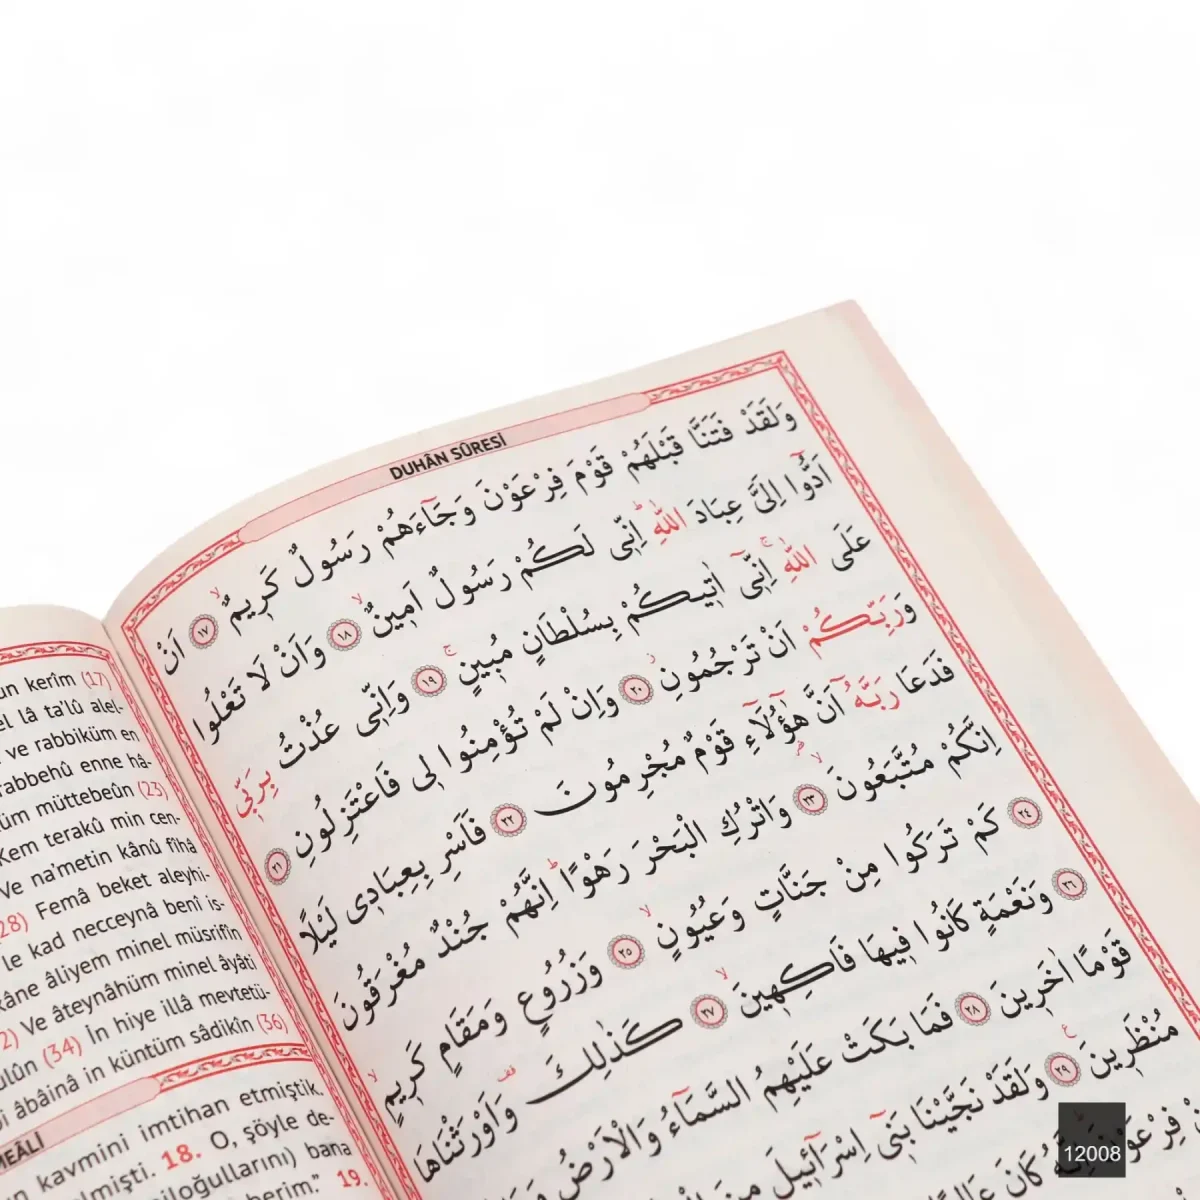 DUHÂN SÛRESİ
وَلَقَدْ فَتَنَّا قَبْلَهُمْ قَوْمَ فِرْعَوْنَ وَجَٓاءَهُمْ رَسُولٌ كَرِيمٌۙ ﴿١٧﴾ اَنْ
اَدُّٓوا اِلَيَّ عِبَادَ اللّٰهِۜ اِنّ۪ي لَكُمْ رَسُولٌ اَم۪ينٌۙ ﴿١٨﴾ وَاَنْ لَا تَعْلُوا
عَلَى اللّٰهِۚ اِنّ۪ٓي اٰت۪يكُمْ بِسُلْطَانٍ مُب۪ينٍۚ ﴿١٩﴾ وَاِنّ۪ي عُذْتُ بِرَبّ۪ي
وَرَبِّكُمْ اَنْ تَرْجُمُونِۘ ﴿٢٠﴾ وَاِنْ لَمْ تُؤْمِنُوا ل۪ي فَاعْتَزِلُونِ ﴿٢١﴾
فَدَعَا رَبَّهُٓ اَنَّ هٰٓؤُ۬لَٓاءِ قَوْمٌ مُجْرِمُونَ ﴿٢٢﴾ فَاَسْرِ بِعِبَاد۪ي لَيْلًا
اِنَّكُمْ مُتَّبَعُونَۙ ﴿٢٣﴾ وَاتْرُكِ الْبَحْرَ رَهْوًاۜ اِنَّهُمْ جُنْدٌ مُغْرَقُونَ
﴿٢٤﴾ كَمْ تَرَكُوا مِنْ جَنَّاتٍ وَعُيُونٍۙ ﴿٢٥﴾ وَزُرُوعٍ وَمَقَامٍ كَر۪يمٍۙ
﴿٢٦﴾ وَنَعْمَةٍ كَانُوا ف۪يهَا فَاكِه۪ينَۙ ﴿٢٧﴾ كَذٰلِكَ وَاَوْرَثْنَاهَا
قَوْمًا اٰخَر۪ينَ ﴿٢٨﴾ فَمَا بَكَتْ عَلَيْهِمُ السَّمَٓاءُ وَالْاَرْضُ
مُنْظَر۪ينَ۟ ﴿٢٩﴾ وَلَقَدْ نَجَّيْنَا بَن۪ٓي اِسْرَٓائ۪يلَ مِنَ
فِرْعَوْنَۜ اِنَّهُ كَانَ
un kerîm (17)
el lâ ta'lû alel-
ve rabbiküm en
rabbehû enne hâ-
üm müttebeûn (23)
Kem terakû min cen-
Ve na'metin kânû fîhâ
(28) Femâ beket aleyhi-
le kad necceynâ benî is-
kâne âliyem minel müsrifîn
2) Ve âteynâhüm minel âyâti
ulûn (34) İn hiye illâ mevtetü-
bi âbâinâ in küntüm sâdikîn (36)
MEÂLİ
n kavmini imtihan etmiştik.
elmişti. 18. O, şöyle de-
iloğullarını) bana
berim." 19.
12008